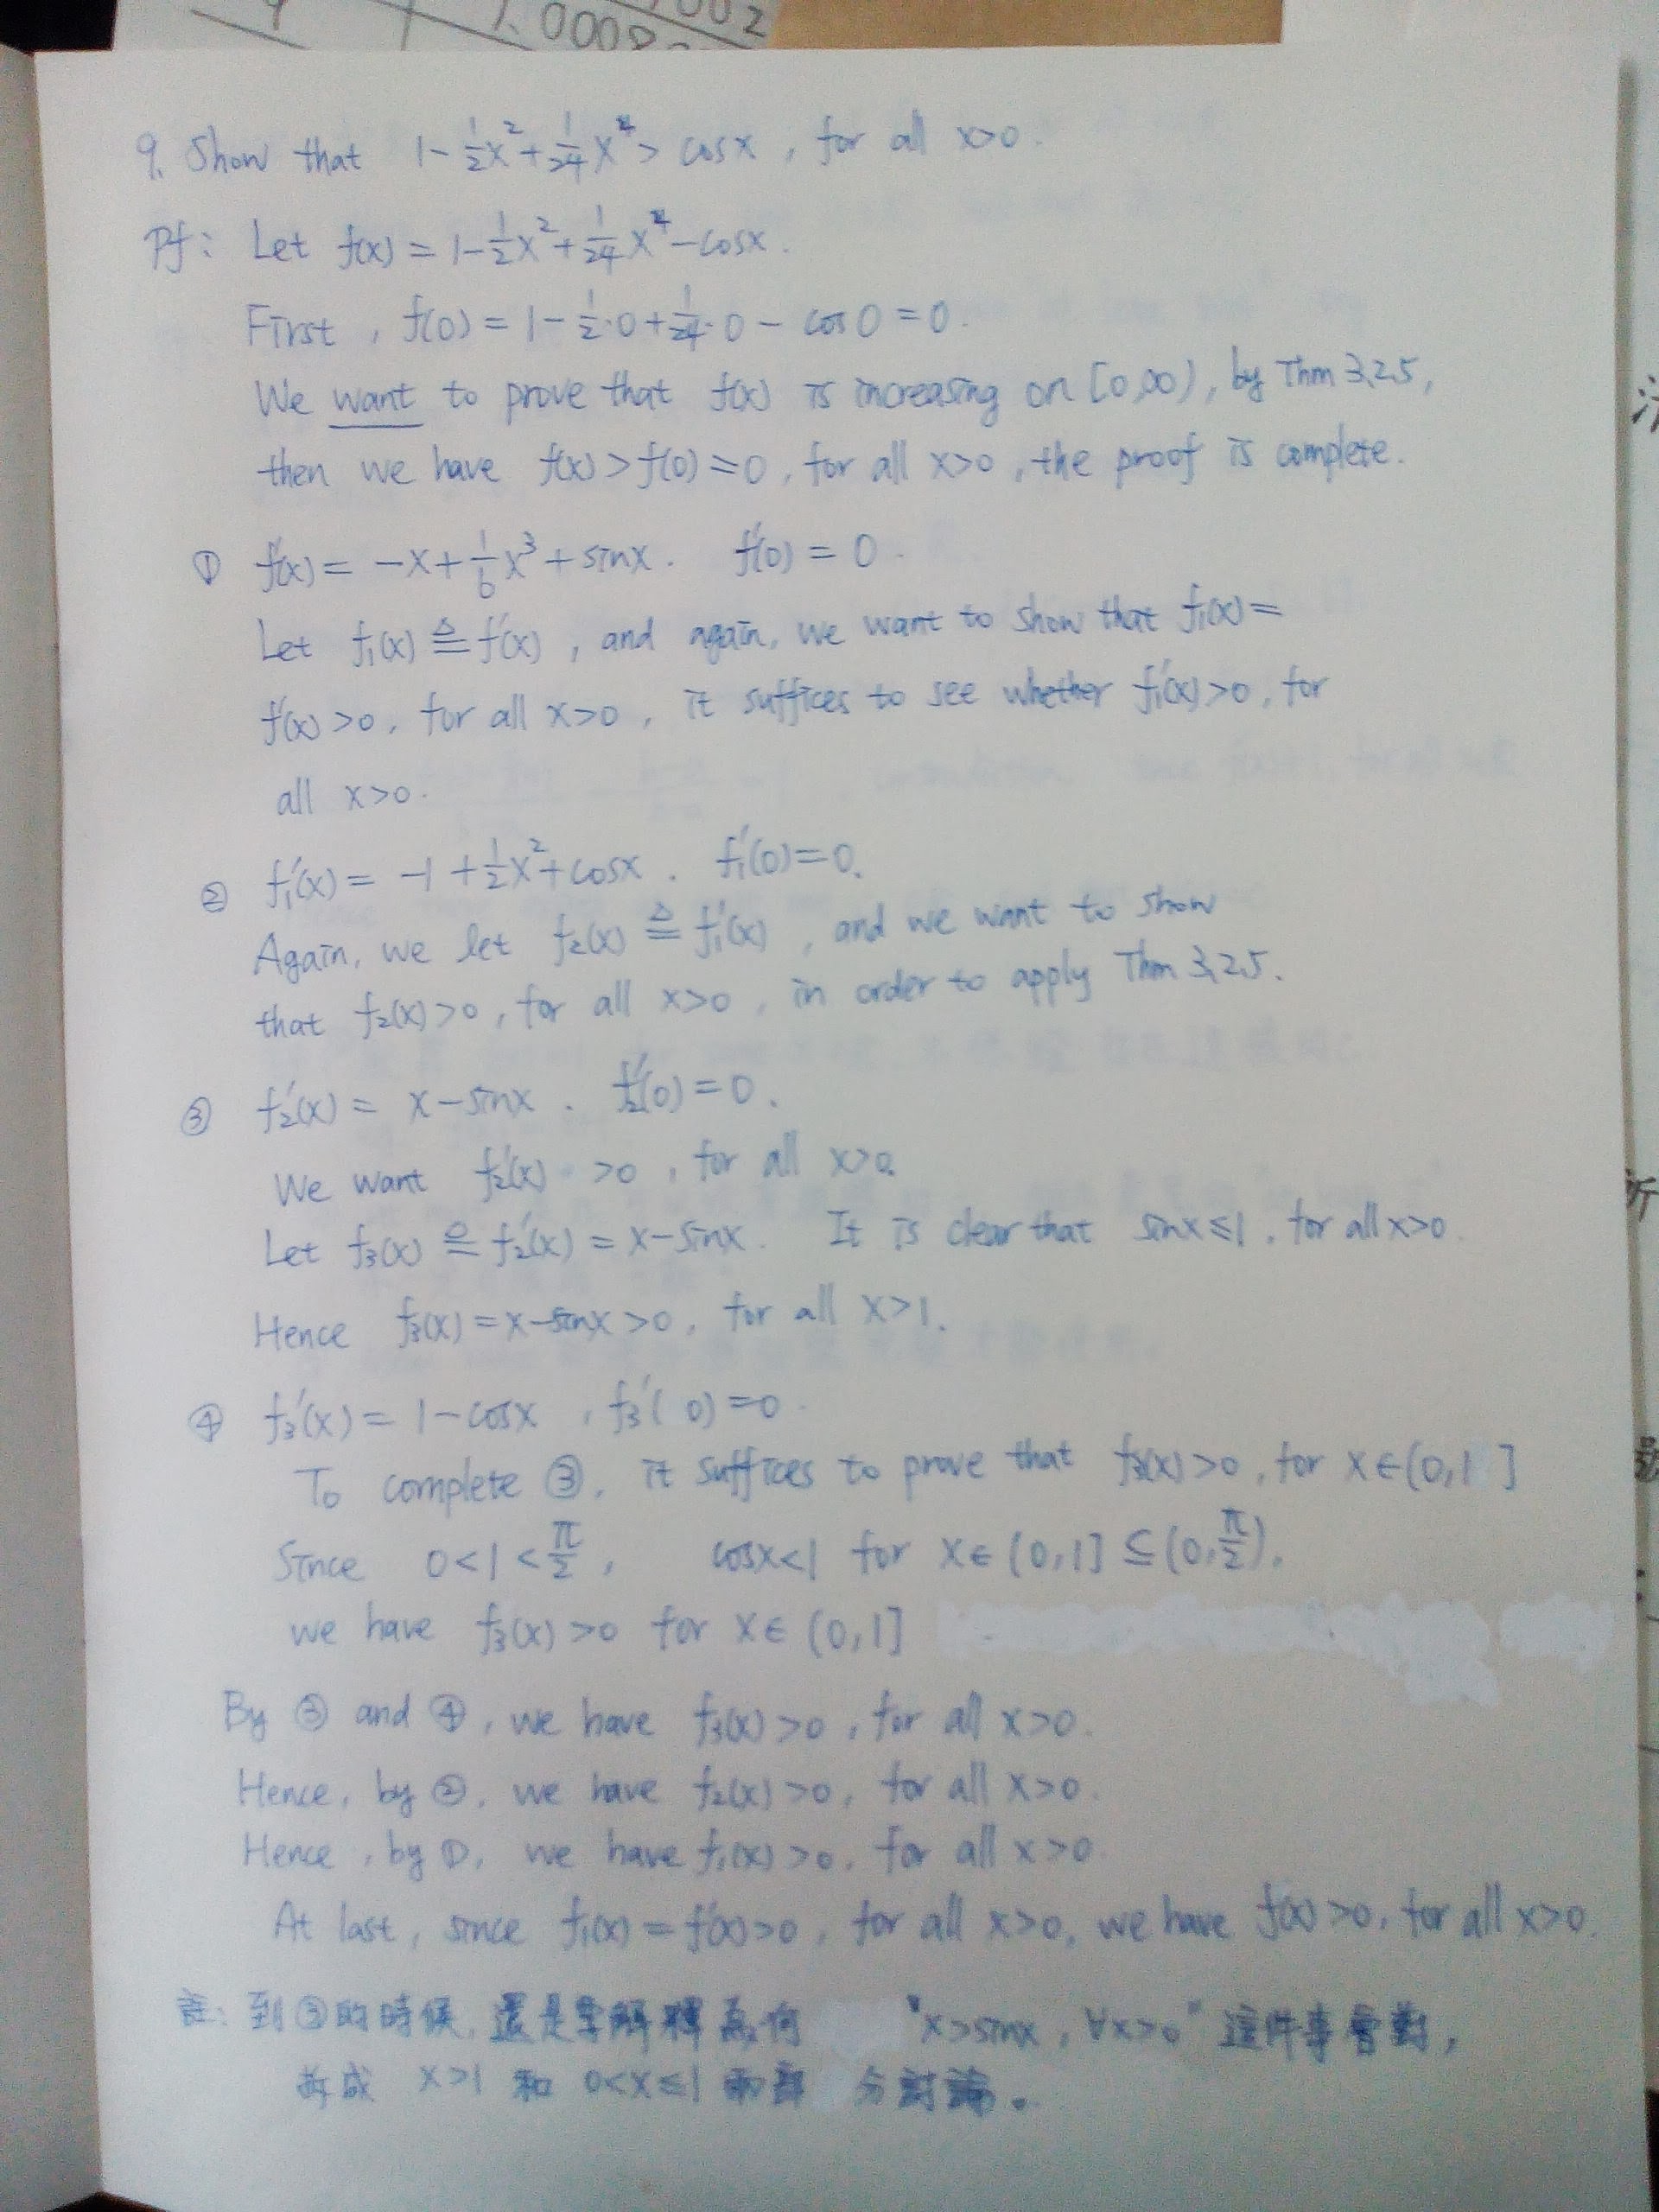 1.0008
002
9. Show that 1-½x²+1/24 x⁴ > cosx, for all x>0.
Pf: Let f(x) = 1-½x²+1/24 x⁴-cosx.
First, f(0) = 1-½·0+1/24·0 - cos0 = 0.
We want to prove that f(x) is increasing on [0,∞), by Thm 3.2.5,
then we have f(x)>f(0)=0, for all x>0, the proof is complete.
① f'(x) = -x+1/6 x³+sinx. f'(0) = 0.
Let f₁(x) ≜ f'(x), and again, we want to show that f₁(x)=
f'(x)>0, for all x>0, it suffices to see whether f₁'(x)>0, for
all x>0.
② f₁'(x) = -1+½x²+cosx. f₁'(0)=0.
Again, we let f₂(x) ≜ f₁'(x), and we want to show
that f₂(x)>0, for all x>0, in order to apply Thm 3.2.5.
③ f₂'(x) = x-sinx. f₂'(0)=0.
We want f₂'(x) >0, for all x>0.
Let f₃(x) ≜ f₂'(x) = x-sinx. It is clear that sinx≤1, for all x>0.
Hence f₃(x)=x-sinx>0, for all x>1.
④ f₃'(x) = 1-cosx, f₃'(0)=0.
To complete ③, it suffices to prove that f₃(x)>0, for x∈(0,1]
Since 0<1<π/2, cosx<1 for x∈(0,1]⊆(0,π/2).
we have f₃(x)>0 for x∈(0,1]
By ③ and ④, we have f₃(x)>0, for all x>0.
Hence, by ②, we have f₂(x)>0, for all x>0.
Hence, by ①, we have f₁(x)>0, for all x>0
At last, since f₁(x)=f'(x)>0, for all x>0, we have f(x)>0, for all x>0.
註: 到③的時候, 還是要解釋為何 "x>sinx, ∀x>0" 這件事會對,
拆成 x>1 和 0<x≤1 兩部分討論。